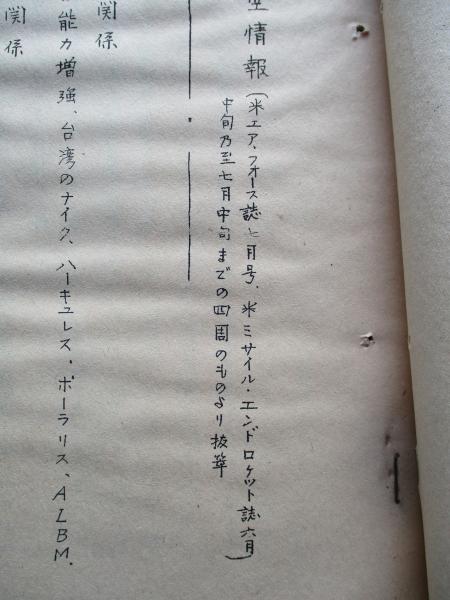 空情報(米エア、フォース誌七月号、米ミサイル・エンドロケット誌六月
中旬乃至七月中旬までの四周のものより抜萃)
関係
能力増強、台湾のナイク、ハーキュレス、ポーラリス、ALBM.
関係